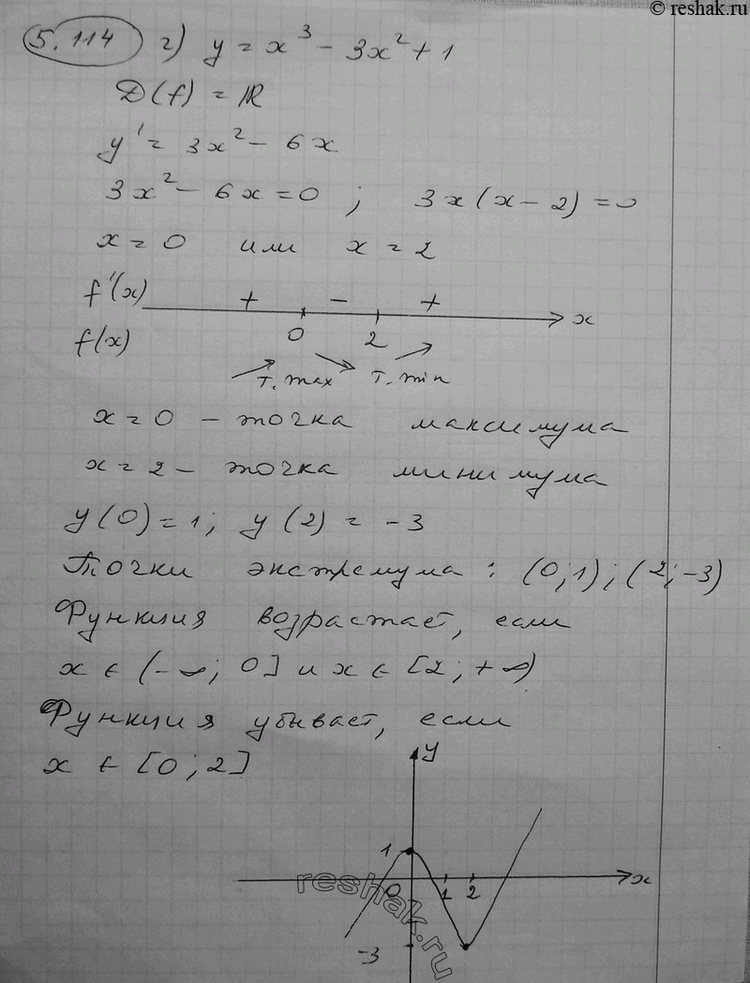 © reshak.ru
5.114 г) y = x³ - 3x² + 1
D(f) = ℝ
y' = 3x² - 6x
3x² - 6x = 0 ; 3x(x - 2) = 0
x = 0 или x = 2
f'(x) + - + x
f(x) 0 2
т. max т. min
x = 0 - точка максимума
x = 2 - точка минимума
y(0) = 1; y(2) = -3
Точки экстремума : (0;1); (2;-3)
Функция возрастает, если
x ∈ (-∞; 0] и x ∈ [2; +∞)
Функция убывает, если
x ∈ [0; 2]
y
1
0 1 2 x
-3
reshak.ru